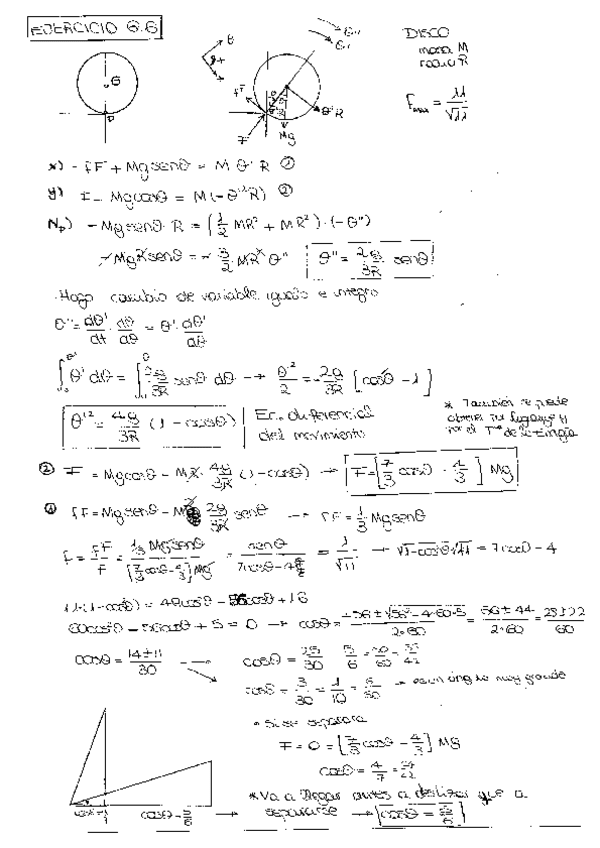 EJERCICIO 6.6
DISCO
masa M
radio R
G
P
θ
θ''
θ'
θ'R
Mg
F
x) - fF + Mg senθ = M θ'' R ①
y) F - Mg cosθ = M(-θ'²R) ②
Np) - Mg senθ · R = (1/2 MR² + MR²) · (-θ'')
- MgR senθ = - 3/2 MR² θ'' θ'' = 2g/3R senθ
· Hago cambio de variable, igualo e integro
θ'' = dθ'/dt · dθ/dθ = θ' · dθ'/dθ
∫ θ' dθ' = ∫ 2g/3R senθ dθ → θ'²/2 = -2g/3R [cosθ - 1]
θ'² = 4g/3R (1 - cosθ) Ec. diferencial
del movimiento
* También se puede
obtener por Lagrange y
por el T de la Energía
② F = Mg cosθ - MR · 4g/3R (1 - cosθ) → F = [7/3 cosθ - 4/3] Mg
① fF = Mg senθ - MR 2g/3R senθ → fF = 1/3 Mg senθ
f = fF/F = 1/3 Mg senθ / [7/3 cosθ - 4/3] Mg = senθ / 7cosθ - 4 = 1/√11 → √1-cos²θ √11 = 7cosθ - 4
11(1 - cos²θ) = 49cos²θ - 56cosθ + 16
60cos²θ - 56cosθ + 5 = 0 → cosθ = 56 ± √56² - 4·60·5 / 2·60 = 56 ± 44 / 2·60 = 28 ± 22 / 60
cosθ = 14 ± 11 / 30 → cosθ = 25/30 = 5/6
cosθ = 3/30 = 1/10 → es un ángulo muy grande
* Si se separara
F = 0 = [7/3 cosθ - 4/3] Mg
cosθ = 4/7
* Va a llegar antes a deslizar que a
separarse → cosθ = 5/6
cosθ = 5/6